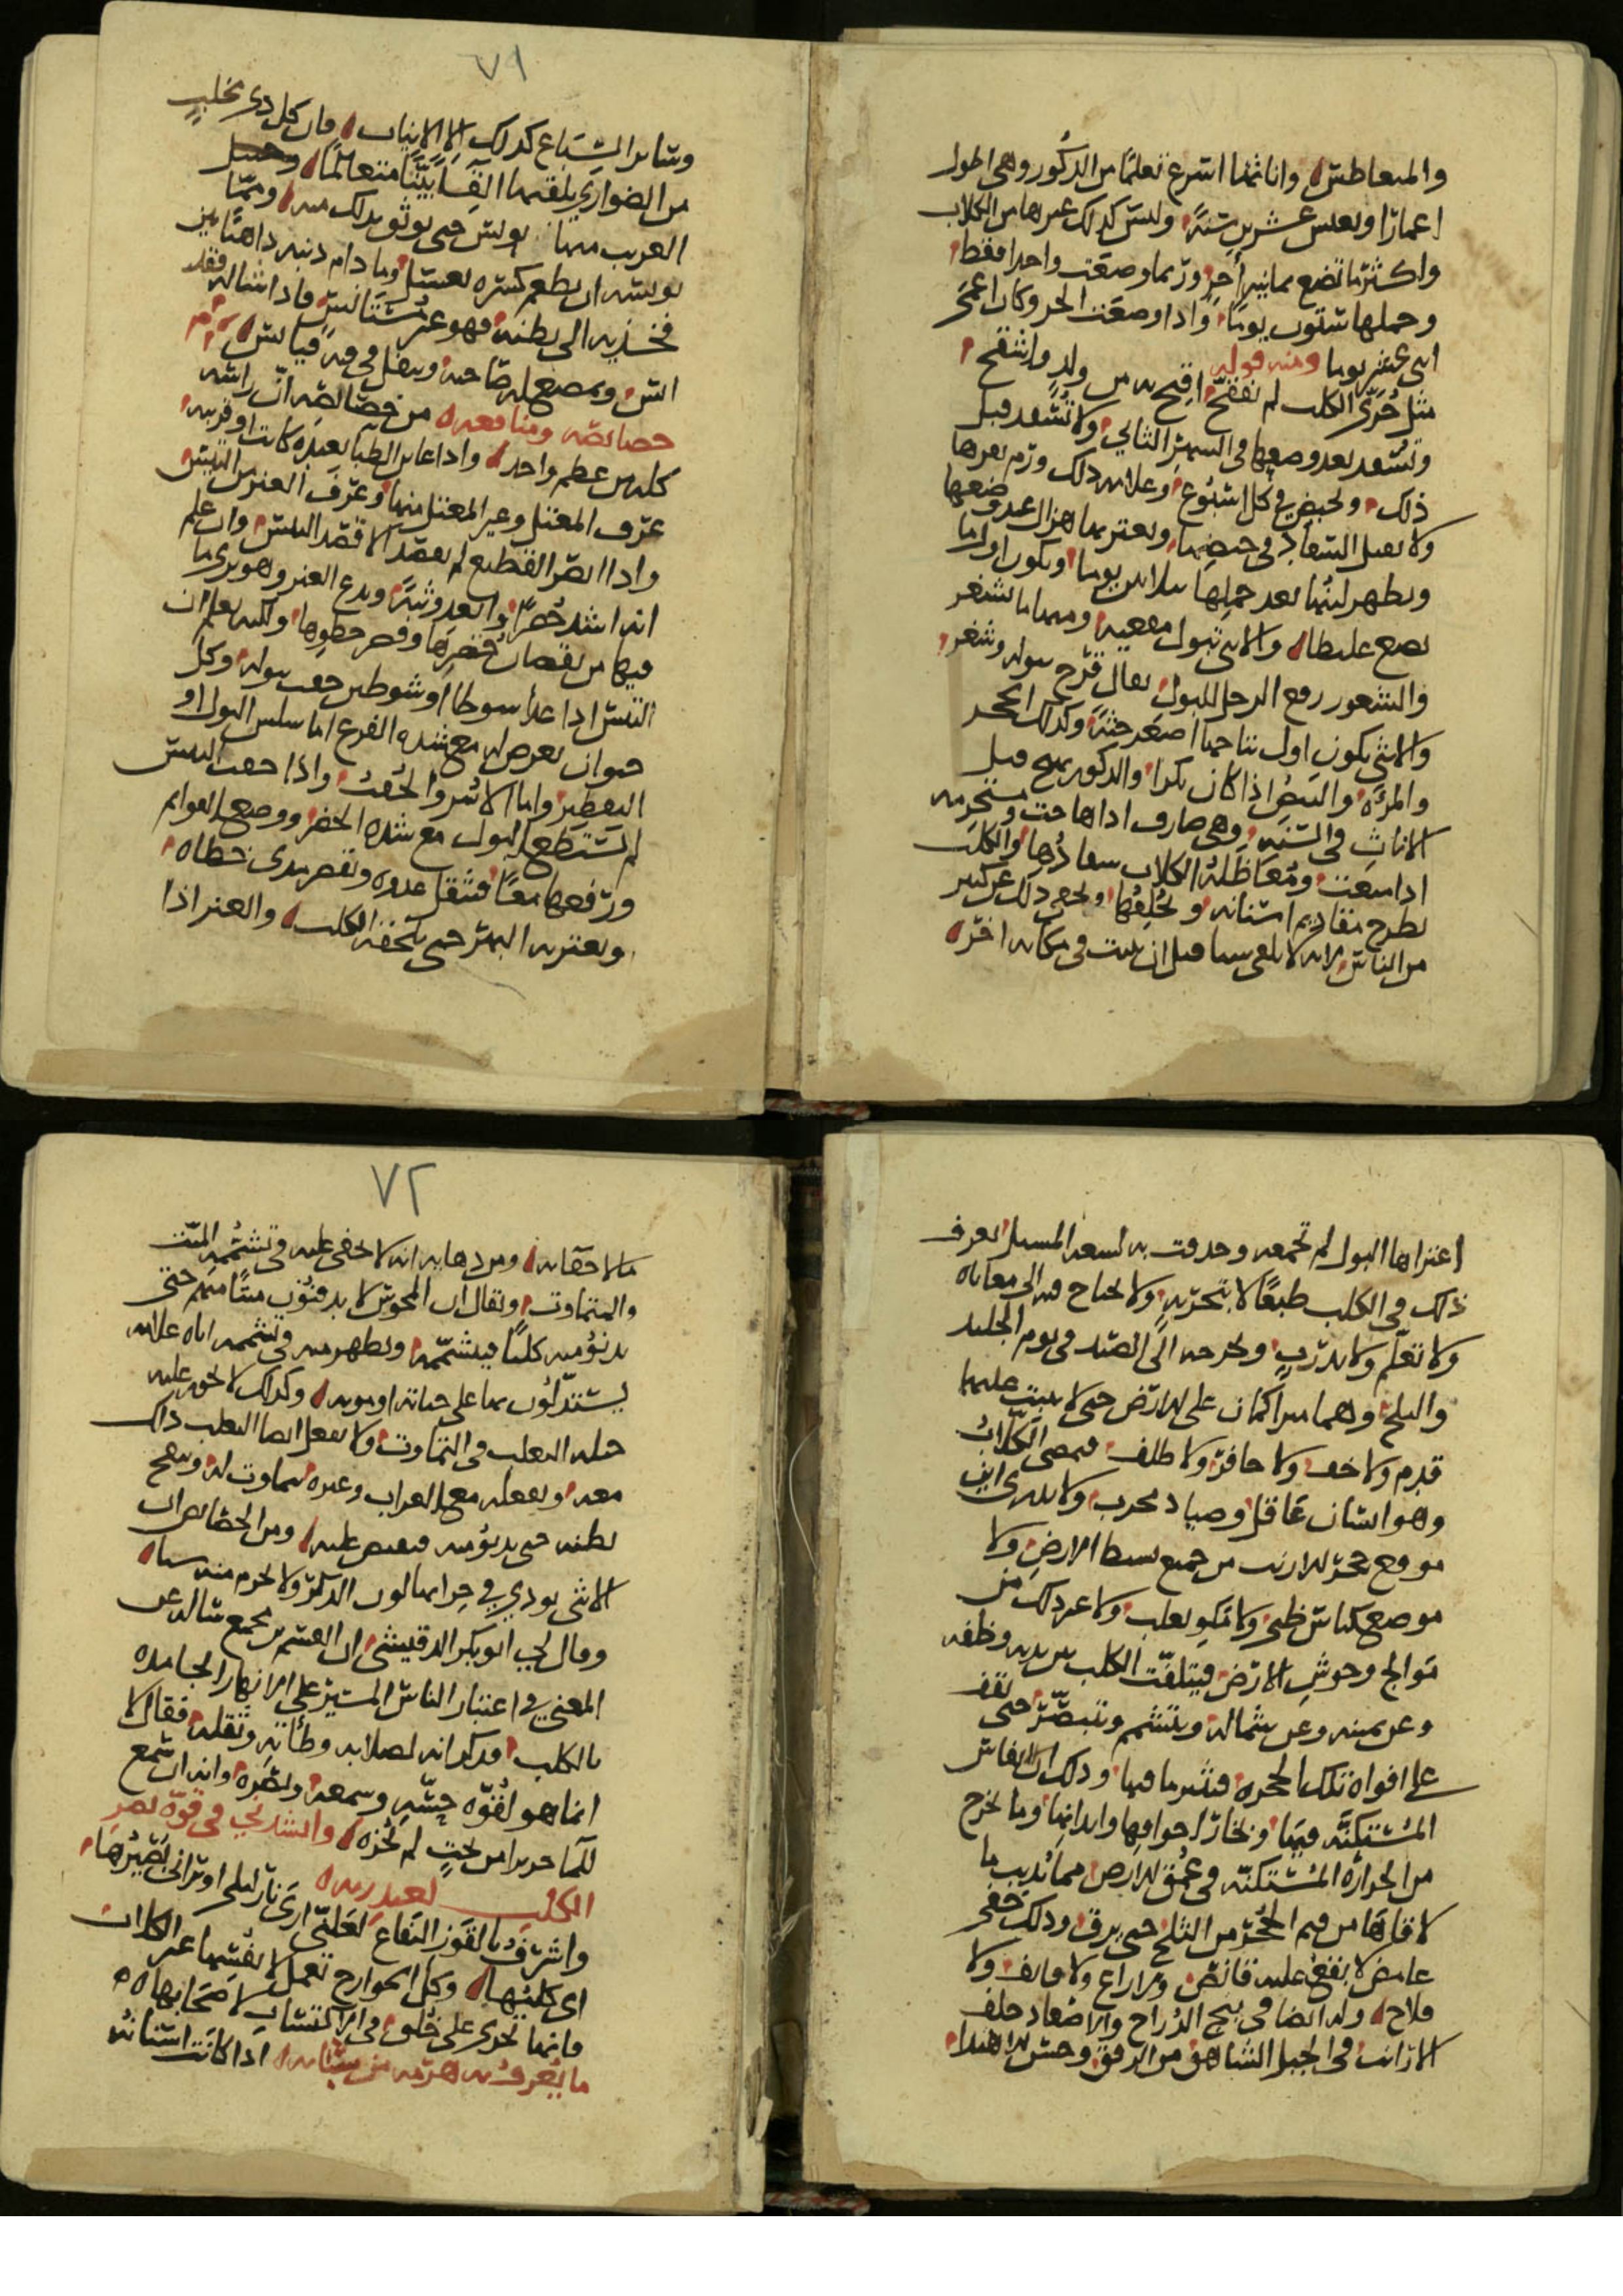 والمعاطش وإناثها أسرع تعلمًا من الذكور وهي أطول
أعمارًا وتعيش عشرين سنة وليس كذلك غيرها من الكلاب
وأكثر ما تضع ثمانية أجرٍ وربما وضعت واحدا فقط
وحملها ستون يومًا وإذا وضعت الجرو كان أعمى
اثني عشر يوما ومنه قوله
مثل جرى الكلب لم يفقح أقبح به من ولدٍ وأشقح
وتسفد بعد وضعها في الشهر الثاني ولا تسفد قبل
ذلك وتحيض في كل أسبوع وعلامة ذلك ورم ثفرها
ولا تقبل السفاد في حيضها ويعتريها هزال عند وضعها
ويظهر لبنها بعد حملها بثلاثين يوما ويكون أول ما
تضع غليظا والأنثى تبول مقعية ومنها ما تشغر
والشغور رفع الرجل للبول يقال قزح ببوله وشغر
والأنثى يكون أول نتاجها أصغر جثة وكذلك الحجر
والمرأة والبيض إذا كان بكرا والذكور تهيج قبل
الإناث في السنة وهي صارف إذا هاجت ومستحرمة
إذا سفدت ومعاظلة الكلاب سفادها والكلب
يطرح مقاديم أسنانه ويخلفها ويخفى ذلك عن كثير
من الناس لأنه لا يلقي سنا قبل أن ينبت في مكانه آخر
٧١
وسائر السباع كذلك إلا الأنياب فإن كل ذي مخلب
من الضواري يلقيها إلقاءً بينًا متعالمًا
الغريب منها يونس حتى يوثق بذلك منه ومما
يونسه أن يطعم كسرة بعسل وما دام ذنبه ذاهبًا بين
فخذيه إلى بطنه فهو غير مستأنس فإذا أشاله فقد
أنس ويمضغ له صاحبه ويتفل في فيه فيأنس
خصائصه ومنافعه من خصائصه أن رأسه
كله من عظم واحد وإذا عاين الظبا بعيدة كانت أو قريبة
عرف المعتل وغير المعتل منها وعرف العنز من التيس
وإذا أبصر القطيع لم يقصد إلا قصد التيس وإن علم
أنه أشد حضرًا وأبعد وثبة ويدع العنز وهو يرى ما
فيها من نقصان حضرها وقصر خطوها ولكنه يعلم أن
التيس إذا عدا شوطا أو شوطين حقب ببوله وكل
حيوان يعرض له مع شدة الفزع إما سلس البول أو
التقطير وإما الأسر والحقب وإذا حقب التيس
لم يستطع البول مع شدة الحضر ووضع القوائم
ورفعها معًا فيثقل عدوه ويقصر مدى خطاه
ويعتريه البهر حتى يلحقه الكلب والعنز إذا
اعتراها البول لم تجمعه وحذفت به لسعة المسيل يعرف
ذلك في الكلب طبعًا لا بتجربةٍ ولا يحتاج فيه إلى معاناه
ولا تعلّم ولا تدرّبٍ ويخرجه إلى الصيد في يوم الجليد
والثلج وهما متراكمان على الأرض حتى لا يثبت عليها
قدم ولا خف ولا حافر ولا ظلف فيمضي الكلاب
وهو إنسان عاقل وصياد مجرب ولا يدري أين
موضع جحر الأرانب من جميع بسيط الأرض ولا
موضع كناس ظبي ولا مكو ثعلب ولا غير ذلك من
توالج وحوش الأرض فيتلفت الكلب بين يديه وخلفه
وعن يمينه وعن شماله ويتشمم ويتبصر حتى يقف
على أفواه تلك الجحرة فيثير ما فيها وذلك أن أنفاس
المستكنة فيها وبخار أجوافها وأبدانها وما يخرج
من الحرارة المستكنة في عمق الأرض مما يذيب ما
لاقاها من فم الجحر من الثلج حتى يرق وذلك خفي
غامض لا يقع عليه قانص ولا راع ولا قائف ولا
فلاح وله أيضا في تتبع الدراج والإصعاد خلف
الأرانب في الجبل الشاهق من الرفق وحسن الاهتداء
٧٢
ما لا خفا به ومن دهائه أنه لا يخفى عليه في تشممه الميت
والمتماوت ويقال إن المجوس لا يدفنون ميتًا منهم حتى
يدنو منه كلبًا فيشممه ويظهر منه في تشممه إياه علامة
يستدلون بها على حياته أو موته وكذلك لا تجوز عليه
حيلة الثعلب في التماوت ولا يفعل أيضا الثعلب ذاك
معه ويفعله مع الغراب وغيره يتماوت له وينفخ
بطنه حتى يدنو منه فيقبض عليه ومن الخصائص أن
الأنثى تودي في جرائها لون الذكر ولا تخرم منه شيا
وقال لي أبو بكر الدقيشي إن القسم بن مجمع سأله عن
المعنى في اعتبار الناس المسير على الأنهار الجامدة
بالكلب فذكر أنه لصلابة وطأته وثقله فقال لا
إنما هو لقوة حسه وسمعه وبصره وأنه إن سمع
للماء خريرا من تحتٍ لم يجزه وأنشدني في قوة بصر
الكلب لعبد ربه
وأشرف بالقور اليفاع لعلني أرى نار ليلى أو يراني بصيرها
أي كلبها وكل الجوارح تعمل لأنفسها غير الكلاب
فإنها تجري على خلق في الاكتساب لأصحابها
ما يعرف به هرمه من شبابه إذا كانت أسنانه